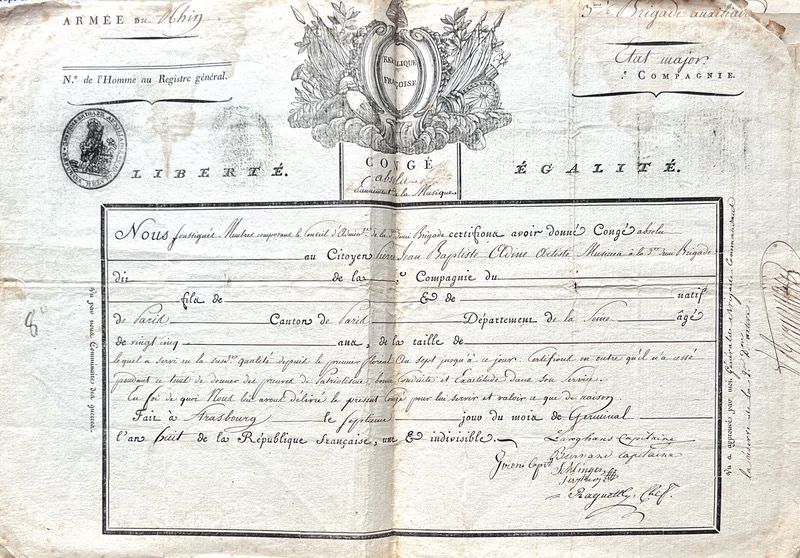 ARMÉE DU Rhin
3me Brigade auxiliaire
N.° de l'Homme au Registre général.
État major.
e COMPAGNIE.
RÉPUBLIQUE
FRANÇOISE
LIBERTÉ.
CONGÉ
absolu
ÉGALITÉ.
à la Musique
Nous soussignés Membres composant le Conseil d'Admin.on de la 3e demi Brigade certifions avoir donné Congé absolu
au Citoyen Pierre Jean Baptiste Artiste Musicien à la 3e demi Brigade
dit de la e Compagnie du
fils de & de natif
de Paris Canton de Paris Département de la Seine âgé
de vingt cinq ans, de la taille de
lequel a servi en la susd.te qualité depuis le premier floréal an sept jusqu'à ce jour. Certifions en outre qu'il n'a cessé
pendant ce tems de donner des preuves de Patriotisme, bonne Conduite et Exactitude dans son Service.
En foi de quoi Nous lui avons délivré le présent Congé pour lui servir et valoir ce que de raison.
Fait à Strasbourg le Septieme jour du mois de Germinal
l'an huit de la République française, une & indivisible.
Langhans Capitaine
Capitaine
Capit.
Schlinger
Chef.
Vu par nous, Commissaire des guerres.
Vu & approuvé par moi Général de Brigade Commandant
la de la 5e Don Militaire
8